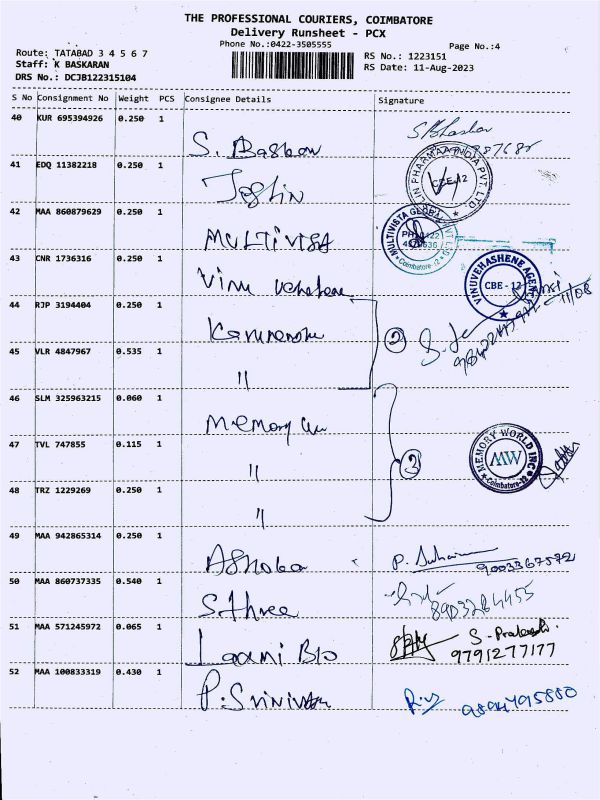 THE PROFESSIONAL COURIERS, COIMBATORE
Delivery Runsheet - PCX
Phone No.:0422-3505555
Page No.:4
Route: TATABAD 3 4 5 6 7
RS No.: 1223151
Staff: K BASKARAN
RS Date: 11-Aug-2023
DRS No.: DCJB122315104
S No Consignment No Weight PCS Consignee Details Signature
40 KUR 695394926 0.250 1
S. Baskon
41 EDQ 11382218 0.250 1
Joslin
LIN PHARMA INDIA PVT. LTD.
CBE-12
42 MAA 860879629 0.250 1
MULTIVISA
MULTIVISTA GLOBAL
Coimbatore-12
43 CNR 1736316 0.250 1
Vinu
VINUVEHASHENE AGENCY
CBE - 12
11/08
44 RJP 3194404 0.250 1
2
45 VLR 4847967 0.535 1
"
46 SLM 325963215 0.060 1
Memory
47 TVL 747855 0.115 1
"
3
MEMORY WORLD INC
MW
Coimbatore-12
48 TRZ 1229269 0.250 1
"
49 MAA 942865314 0.250 1
Ashoka
P.
9003367572
50 MAA 860737335 0.540 1
S.three
8903284455
51 MAA 571245972 0.065 1
Laxmi Bio
S. Prakash
9791277177
52 MAA 100833319 0.430 1
P. Srinivas
9894795880